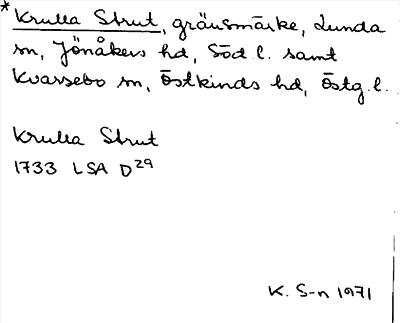 * Krulla Strut, gränsmärke, Lunda
sn, Jönåkers hd, Söd. l. samt
Kvarsebo sn, Östkinds hd, Östg. l.
Krulla Strut
1733 LSA D29
K. S-n 1971